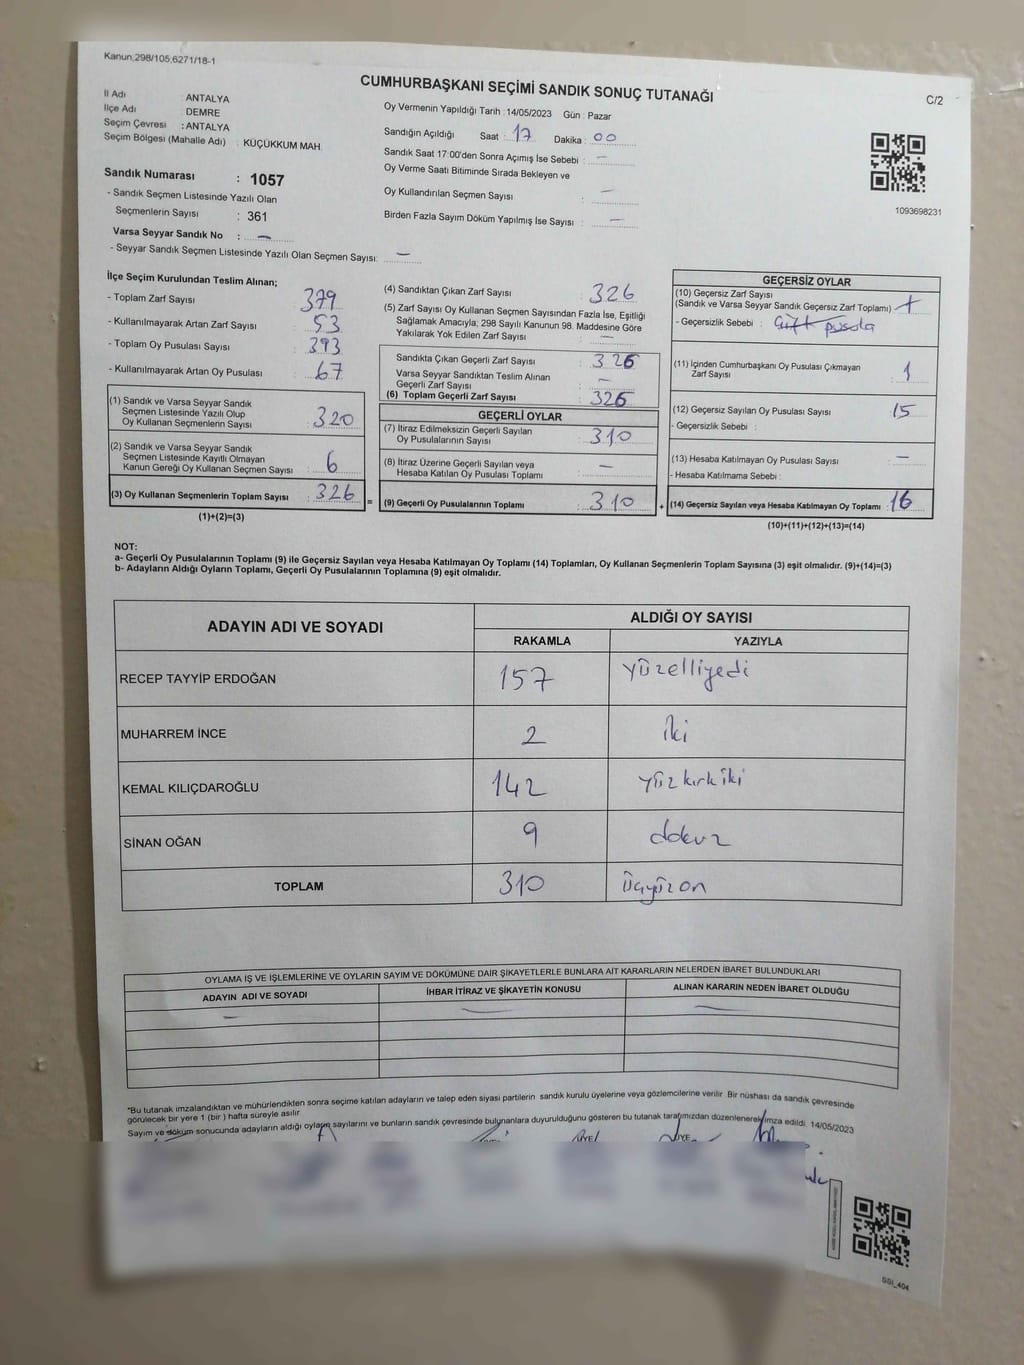 Kanun;298/105,6271/18-1
CUMHURBAŞKANI SEÇİMİ SANDIK SONUÇ TUTANAĞI
C/2
İl Adı ANTALYA
İlçe Adı DEMRE
Seçim Çevresi : ANTALYA
Seçim Bölgesi (Mahalle Adı) : KÜÇÜKKUM MAH.
Oy Vermenin Yapıldığı Tarih : 14/05/2023 Gün : Pazar
Sandığın Açıldığı Saat : 17 Dakika : 00
Sandık Saat 17:00'den Sonra Açımış İse Sebebi : —
Oy Verme Saati Bitiminde Sırada Bekleyen ve
Oy Kullandırılan Seçmen Sayısı : —
Birden Fazla Sayım Döküm Yapılmış İse Sayısı : —
1093698231
Sandık Numarası : 1057
- Sandık Seçmen Listesinde Yazılı Olan
Seçmenlerin Sayısı : 361
Varsa Seyyar Sandık No : —
- Seyyar Sandık Seçmen Listesinde Yazılı Olan Seçmen Sayısı: —
İlçe Seçim Kurulundan Teslim Alınan;
- Toplam Zarf Sayısı : 379
- Kullanılmayarak Artan Zarf Sayısı : 53
- Toplam Oy Pusulası Sayısı : 393
- Kullanılmayarak Artan Oy Pusulası : 67
(1) Sandık ve Varsa Seyyar Sandık
Seçmen Listesinde Yazılı Olup
Oy Kullanan Seçmenlerin Sayısı : 320
(2) Sandık ve Varsa Seyyar Sandık
Seçmen Listesinde Kayıtlı Olmayan
Kanun Gereği Oy Kullanan Seçmen Sayısı : 6
(3) Oy Kullanan Seçmenlerin Toplam Sayısı : 326
(1)+(2)=(3)
=
(4) Sandıktan Çıkan Zarf Sayısı : 326
(5) Zarf Sayısı Oy Kullanan Seçmen Sayısından Fazla İse, Eşitliği
Sağlamak Amacıyla; 298 Sayılı Kanunun 98. Maddesine Göre
Yakılarak Yok Edilen Zarf Sayısı : —
Sandıkta Çıkan Geçerli Zarf Sayısı : 326
Varsa Seyyar Sandıktan Teslim Alınan
Geçerli Zarf Sayısı : —
(6) Toplam Geçerli Zarf Sayısı : 326
GEÇERLİ OYLAR
(7) İtiraz Edilmeksizin Geçerli Sayılan
Oy Pusulalarının Sayısı : 310
(8) İtiraz Üzerine Geçerli Sayılan veya
Hesaba Katılan Oy Pusulası Toplamı : —
(9) Geçerli Oy Pusulalarının Toplamı : 310
+
GEÇERSİZ OYLAR
(10) Geçersiz Zarf Sayısı
(Sandık ve Varsa Seyyar Sandık Geçersiz Zarf Toplamı) :
- Geçersizlik Sebebi : Çift pusula
(11) İçinden Cumhurbaşkanı Oy Pusulası Çıkmayan
Zarf Sayısı : 1
(12) Geçersiz Sayılan Oy Pusulası Sayısı : 15
- Geçersizlik Sebebi :
(13) Hesaba Katılmayan Oy Pusulası Sayısı : —
- Hesaba Katılmama Sebebi :
(14) Geçersiz Sayılan veya Hesaba Katılmayan Oy Toplamı : 16
(10)+(11)+(12)+(13)=(14)
NOT:
a- Geçerli Oy Pusulalarının Toplamı (9) ile Geçersiz Sayılan veya Hesaba Katılmayan Oy Toplamı (14) Toplamları, Oy Kullanan Seçmenlerin Toplam Sayısına (3) eşit olmalıdır. (9)+(14)=(3)
b- Adayların Aldığı Oyların Toplamı, Geçerli Oy Pusulalarının Toplamına (9) eşit olmalıdır.
ADAYIN ADI VE SOYADI
ALDIĞI OY SAYISI
RAKAMLA YAZIYLA
RECEP TAYYİP ERDOĞAN 157 yüzelliyedi
MUHARREM İNCE 2 iki
KEMAL KILIÇDAROĞLU 142 yüzkırkiki
SİNAN OĞAN 9
TOPLAM 310 üçyüzon
OYLAMA İŞ VE İŞLEMLERİNE VE OYLARIN SAYIM VE DÖKÜMÜNE DAİR ŞİKAYETLERLE BUNLARA AİT KARARLARIN NELERDEN İBARET BULUNDUKLARI
ADAYIN ADI VE SOYADI İHBAR İTİRAZ VE ŞİKAYETİN KONUSU ALINAN KARARIN NEDEN İBARET OLDUĞU
— — —
*Bu tutanak imzalandıktan ve mühürlendikten sonra seçime katılan adayların ve talep eden siyasi partilerin sandık kurulu üyelerine veya gözlemcilerine verilir. Bir nüshası da sandık çevresinde
görülecek bir yere 1 (bir ) hafta süreyle asılır.
Sayım ve döküm sonucunda adayların aldığı oyların sayılarını ve bunların sandık çevresinde bulunanlara duyurulduğunu gösteren bu tutanak tarafımızdan düzenlenerek imza edildi. 14/05/2023
ÜYE ÜYE
SGI_404